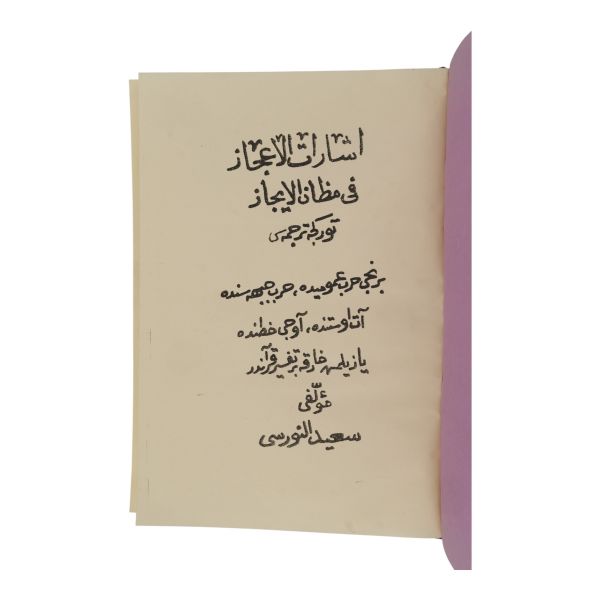 اشارات الاعجاز
فی مظان الایجاز
تورکجه ترجمه‌سی
برنجی حرب عمومیده، حرب جبهه سنده
آت اوستنده، آوجی خطنده
یازیلمش خارقه بر تفسیر قرآندر
مؤلّفی
سعید النورسی